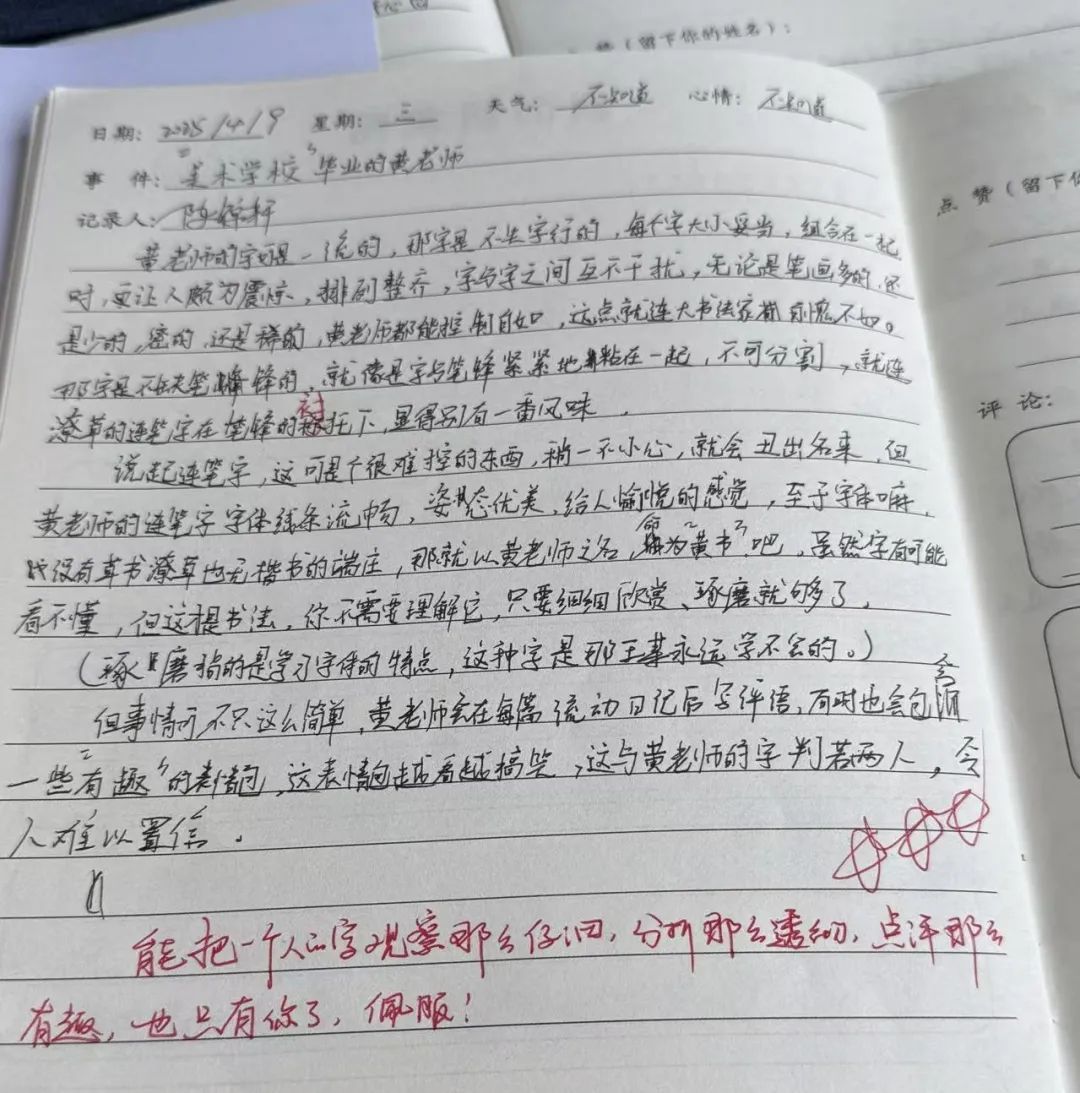 赞（留下你的姓名）：
日期：2025/4/9 星期：三 天气：不知道 心情：不知道
事件：“美术学校”毕业的黄老师
记录人：陈锦轩
黄老师的字可是一流的，那字是不失字行的，每个字大小妥当，组合在一起
时，更让人颇为震惊，排列整齐，字与字之间互不干扰，无论是笔画多的，还
是少的，密的，还是稀的，黄老师都能控制自如，这点就连大书法家都自愧不如。
那字是不失笔锋的，就像是字与笔锋紧紧地粘在一起，不可分割，就连
潦草的连笔字在笔锋的衬托下，显得别有一番风味．
说起连笔字，这可是个很难控的东西，稍一不小心，就会丑出名来，但
黄老师的连笔字字体线条流畅，姿态优美，给人愉悦的感觉，至于字体嘛，
没有草书潦草也无楷书的端庄，那就以黄老师之名，命为“黄书”吧，虽然字有可能
看不懂，但这是书法，你不需要理解它，只要细细欣赏、琢磨就够了．
（琢磨指的是学习字体的特点，这种字是那王某永远学不会的。）
但事情可不只这么简单，黄老师会在每篇流动日记后写评语，有时也会画
一些“有趣”的表情包，这表情包越看越搞笑，这与黄老师的字判若两人，令
人难以置信．
能把一个人的字观察那么仔细，分析那么透彻，点评那么
有趣，也只有你了，佩服！
点赞（留下你
评论：